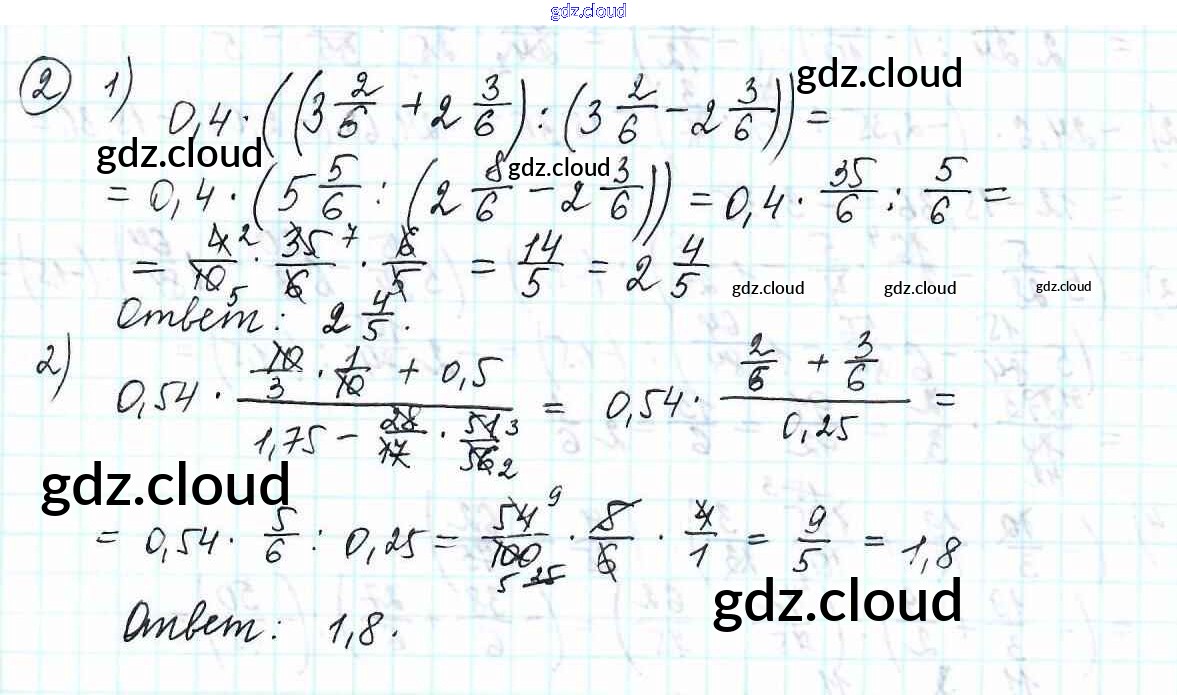 gdz.cloud
2 1) 0,4 · ((3 2/6 + 2 3/6) : (3 2/6 − 2 3/6)) =
gdz.cloud
gdz.cloud
gdz.cloud
= 0,4 · (5 5/6 : (2 8/6 − 2 3/6)) = 0,4 · 35/6 : 5/6 =
= 4 2/10 5 · 35 7/6 · 6/5 = 14/5 = 2 4/5
gdz.cloud gdz.cloud gdz.cloud
Ответ: 2 4/5.
2) 0,54 · (10/3 · 1/10 + 0,5)/(1,75 − 28/17 · 51 3/56 2) = 0,54 · (2/6 + 3/6)/0,25 =
gdz.cloud
= 0,54 · 5/6 : 0,25 = 54 9/100 25 5 · 5/6 · 4/1 = 9/5 = 1,8
gdz.cloud
Ответ: 1,8.